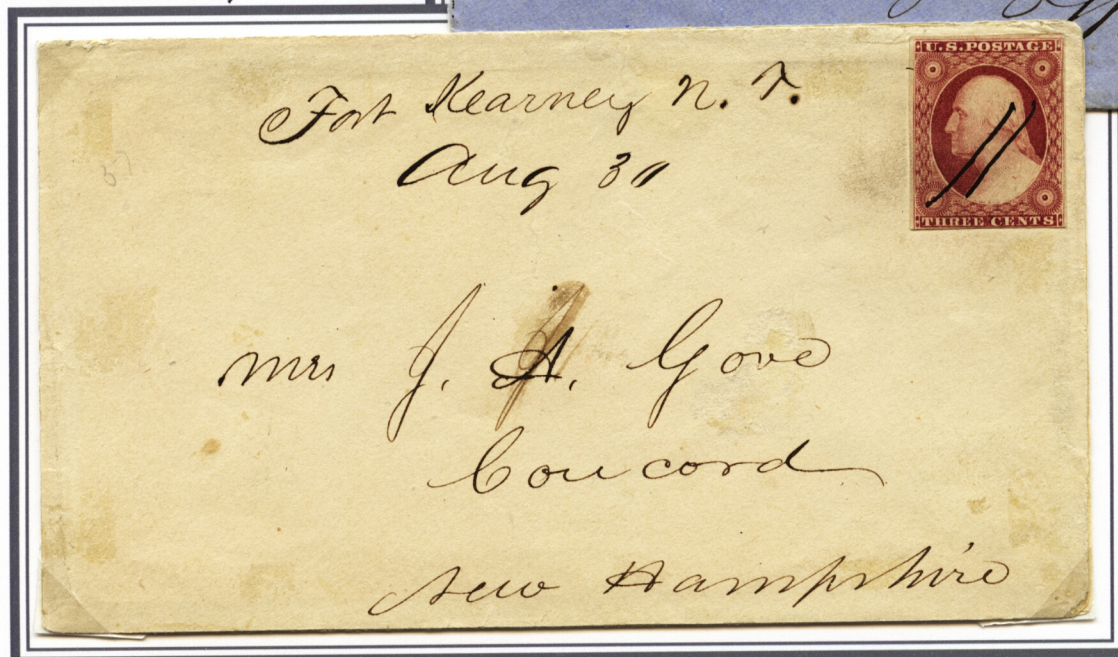 Fort Kearney N. T.
Aug 30
U.S. POSTAGE
THREE CENTS
37
Mrs J. A. Gove
Concord
New Hampshire